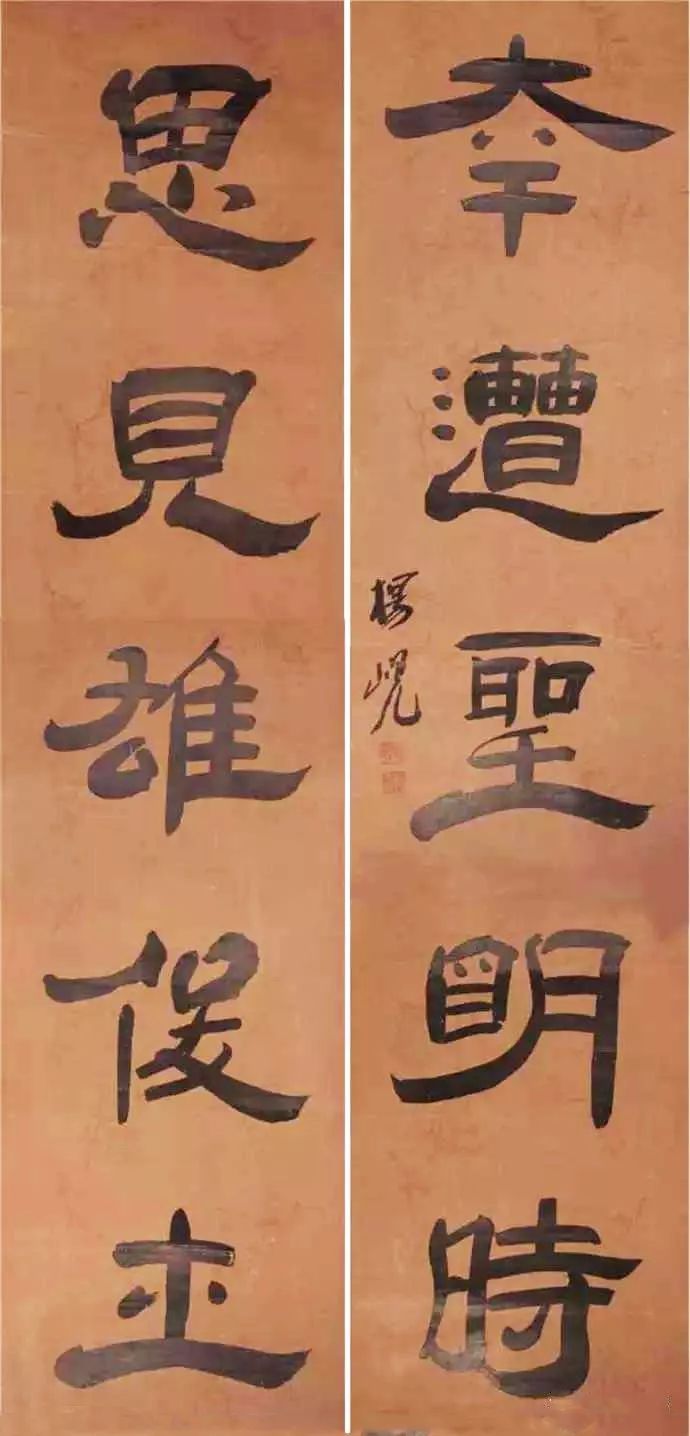 幸遭聖明時
楊峴
思見雄俊士